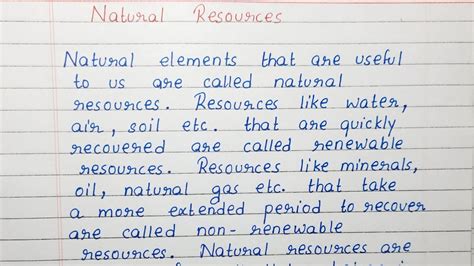 Natural Resources
Natural elements that are useful
to us are called natural
resources. Resources like water,
air, soil etc. that are quickly
recovered are called renewable
resources. Resources like minerals,
oil, natural gas etc. that take
a more extended period to recover
are called non-renewable
resources. Natural resources are